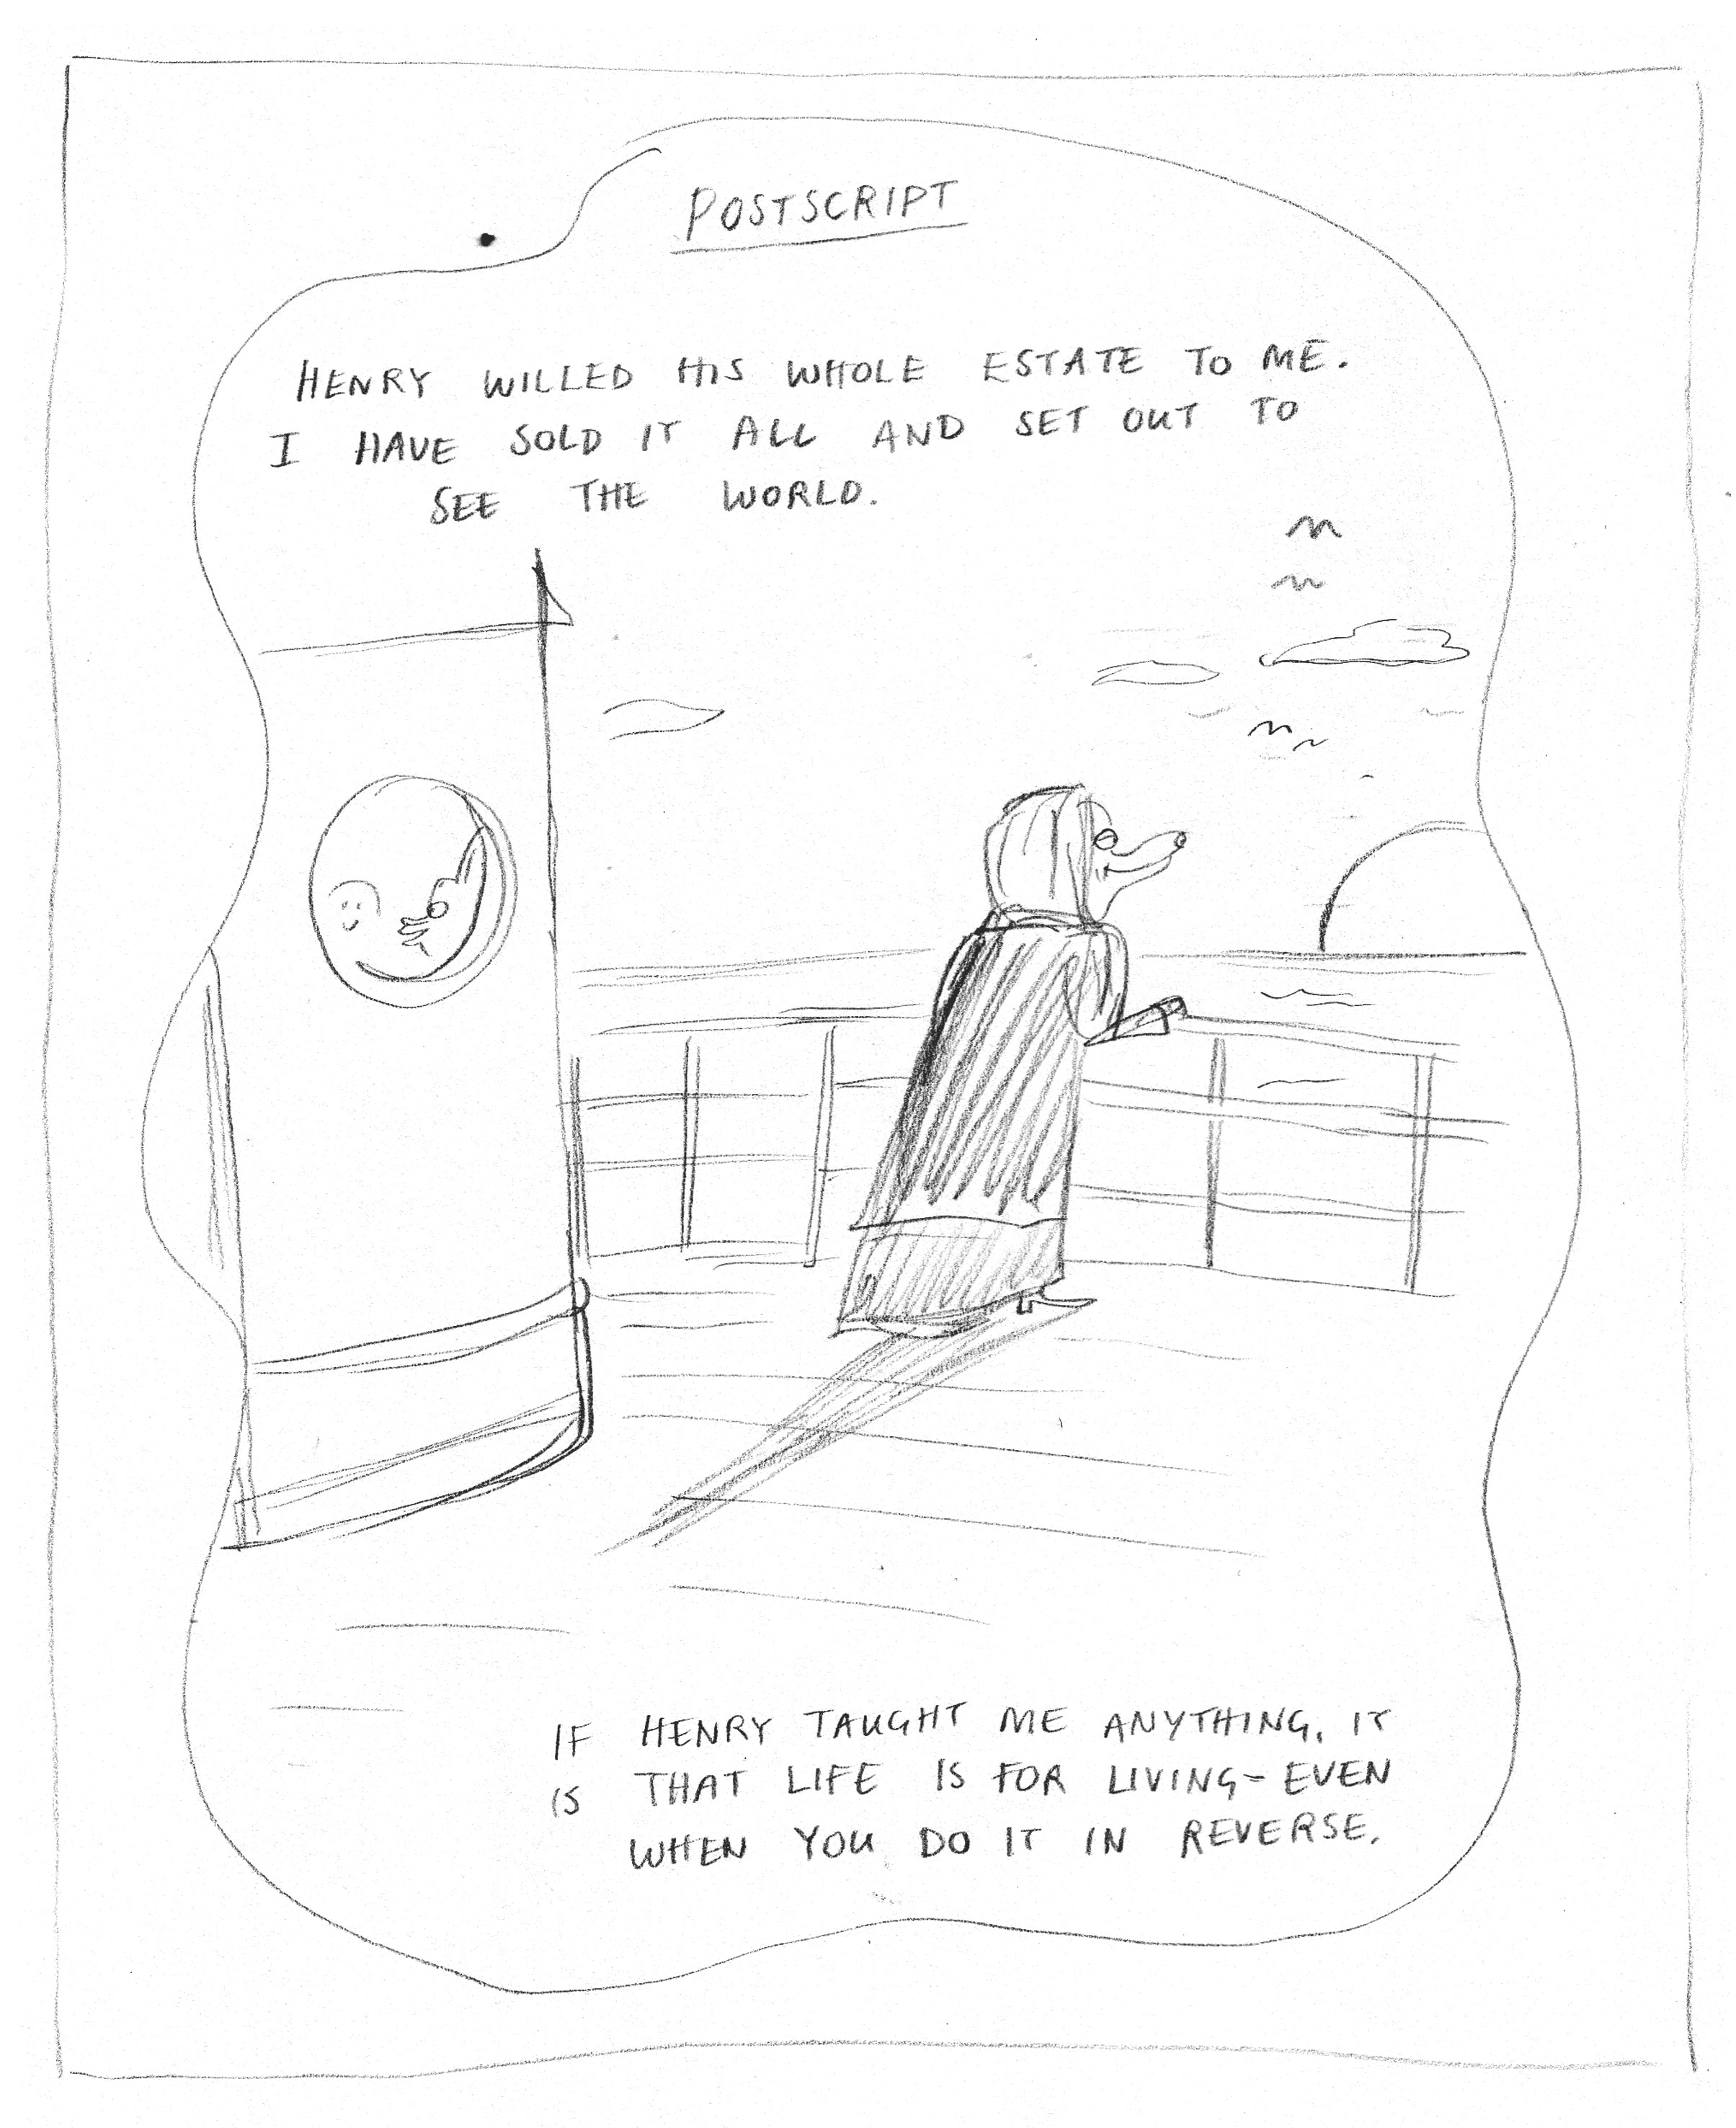 POSTSCRIPT
HENRY WILLED HIS WHOLE ESTATE TO ME.
I HAVE SOLD IT ALL AND SET OUT TO
SEE THE WORLD.
IF HENRY TAUGHT ME ANYTHING, IT
IS THAT LIFE IS FOR LIVING-EVEN
WHEN YOU DO IT IN REVERSE.